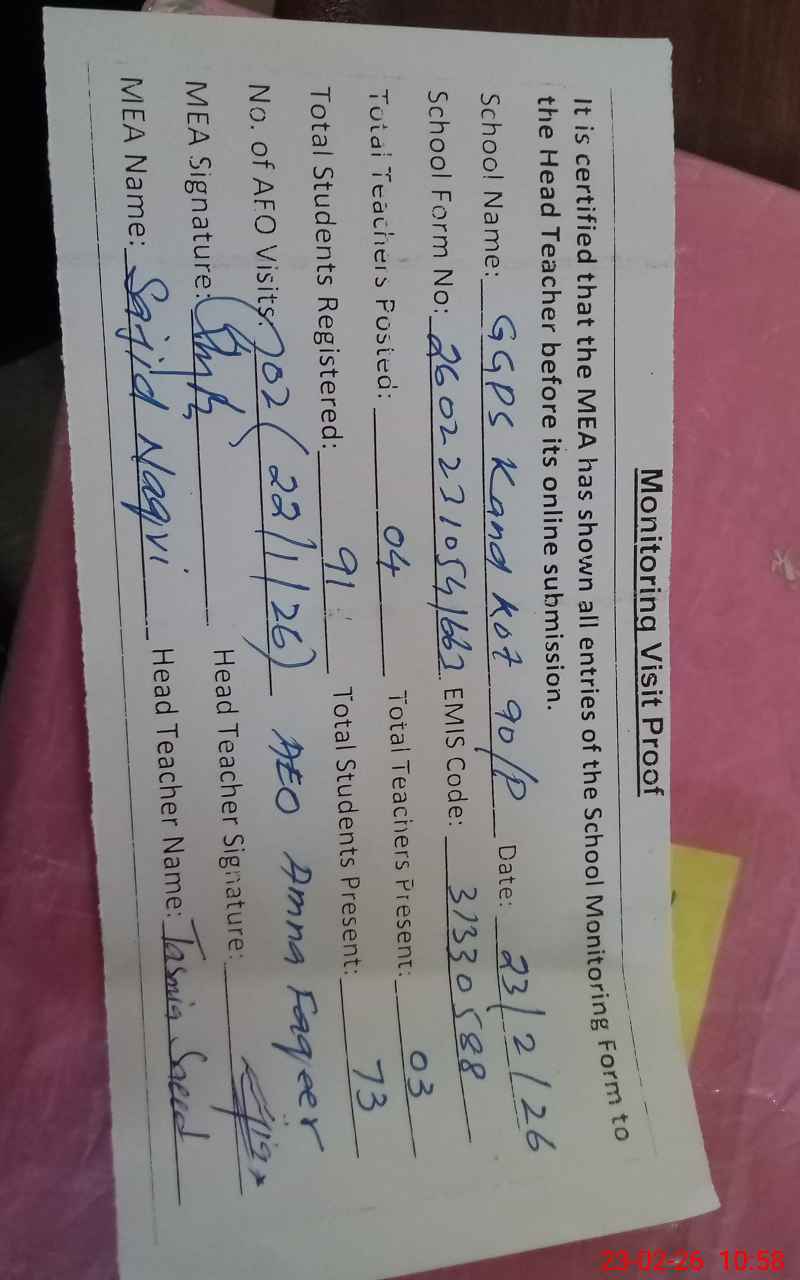 Monitoring Visit Proof
It is certified that the MEA has shown all entries of the School Monitoring Form to
the Head Teacher before its online submission.
School Name: GGPS Kand Kot 90/P Date: 23/2/26
School Form No: 26022310541663 EMIS Code: 31330588
Total Teachers Posted: 04 Total Teachers Present: 03
Total Students Registered: 91 Total Students Present: 73
No. of AEO Visits: 02 (22/1/26) AEO Amna Faqeer
MEA Signature: Head Teacher Signature:
MEA Name: Sajid Naqvi Head Teacher Name: Tasmia Saeed
23-02-26 10:58